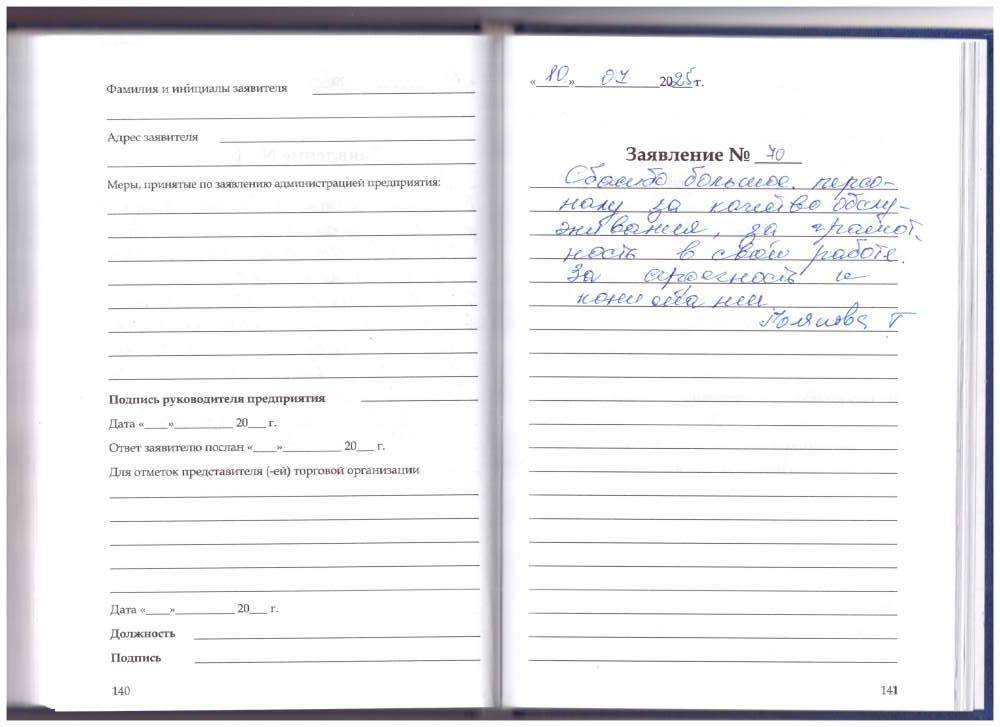 Фамилия и инициалы заявителя
Адрес заявителя
Меры, принятые по заявлению администрацией предприятия:
Подпись руководителя предприятия
Дата «____»__________ 20___ г.
Ответ заявителю послан «____»__________ 20___ г.
Для отметок представителя (-ей) торговой организации
Дата «____»__________ 20___ г.
Должность
Подпись
140
«10» 07 2025 г.
Заявление № 70
Спасибо большое персо-
налу за качество обслу-
живания, за грамот-
ность в своей работе.
За
141